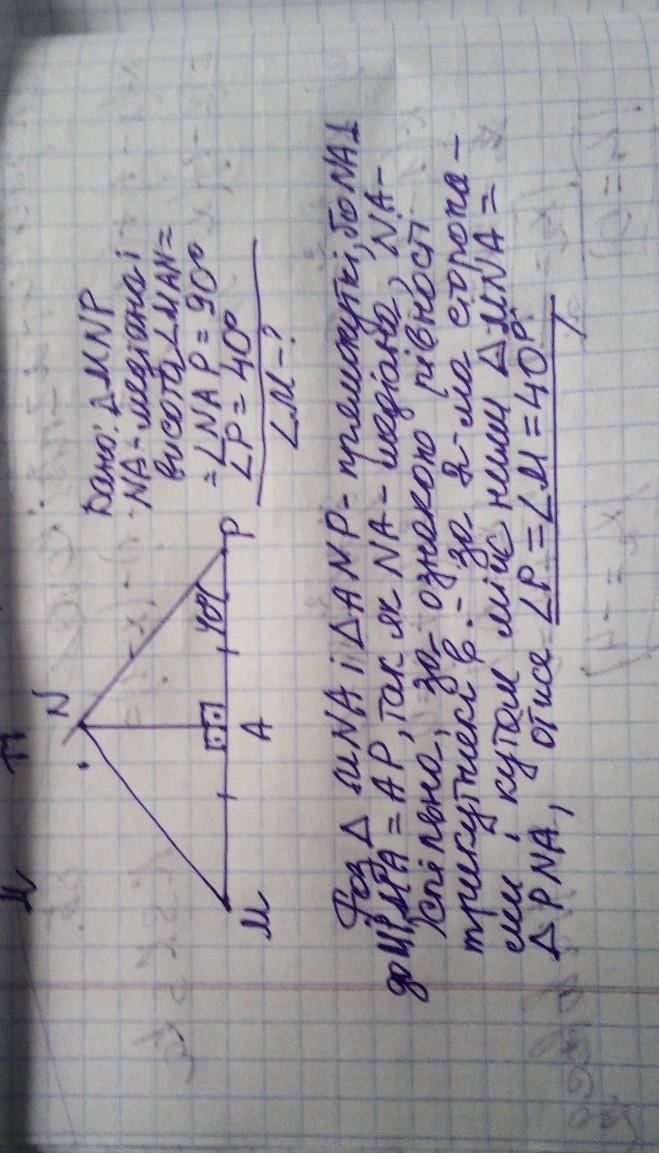 N
M
A
P
40°
Дано: ΔMNP
NA - медіана і
висота ∠MAN =
= ∠NAP = 90°
∠P = 40°
∠M - ?
Δ MNA і ΔANP - прямокутні, бо NA⊥
до MP, MA = AP, так як NA - медіана, NA -
спільна, за ознакою рівності
трикутників - за 2-ма сторона-
ми і кутом між ними ΔMNA =
ΔPNA, отже ∠P = ∠M = 40°